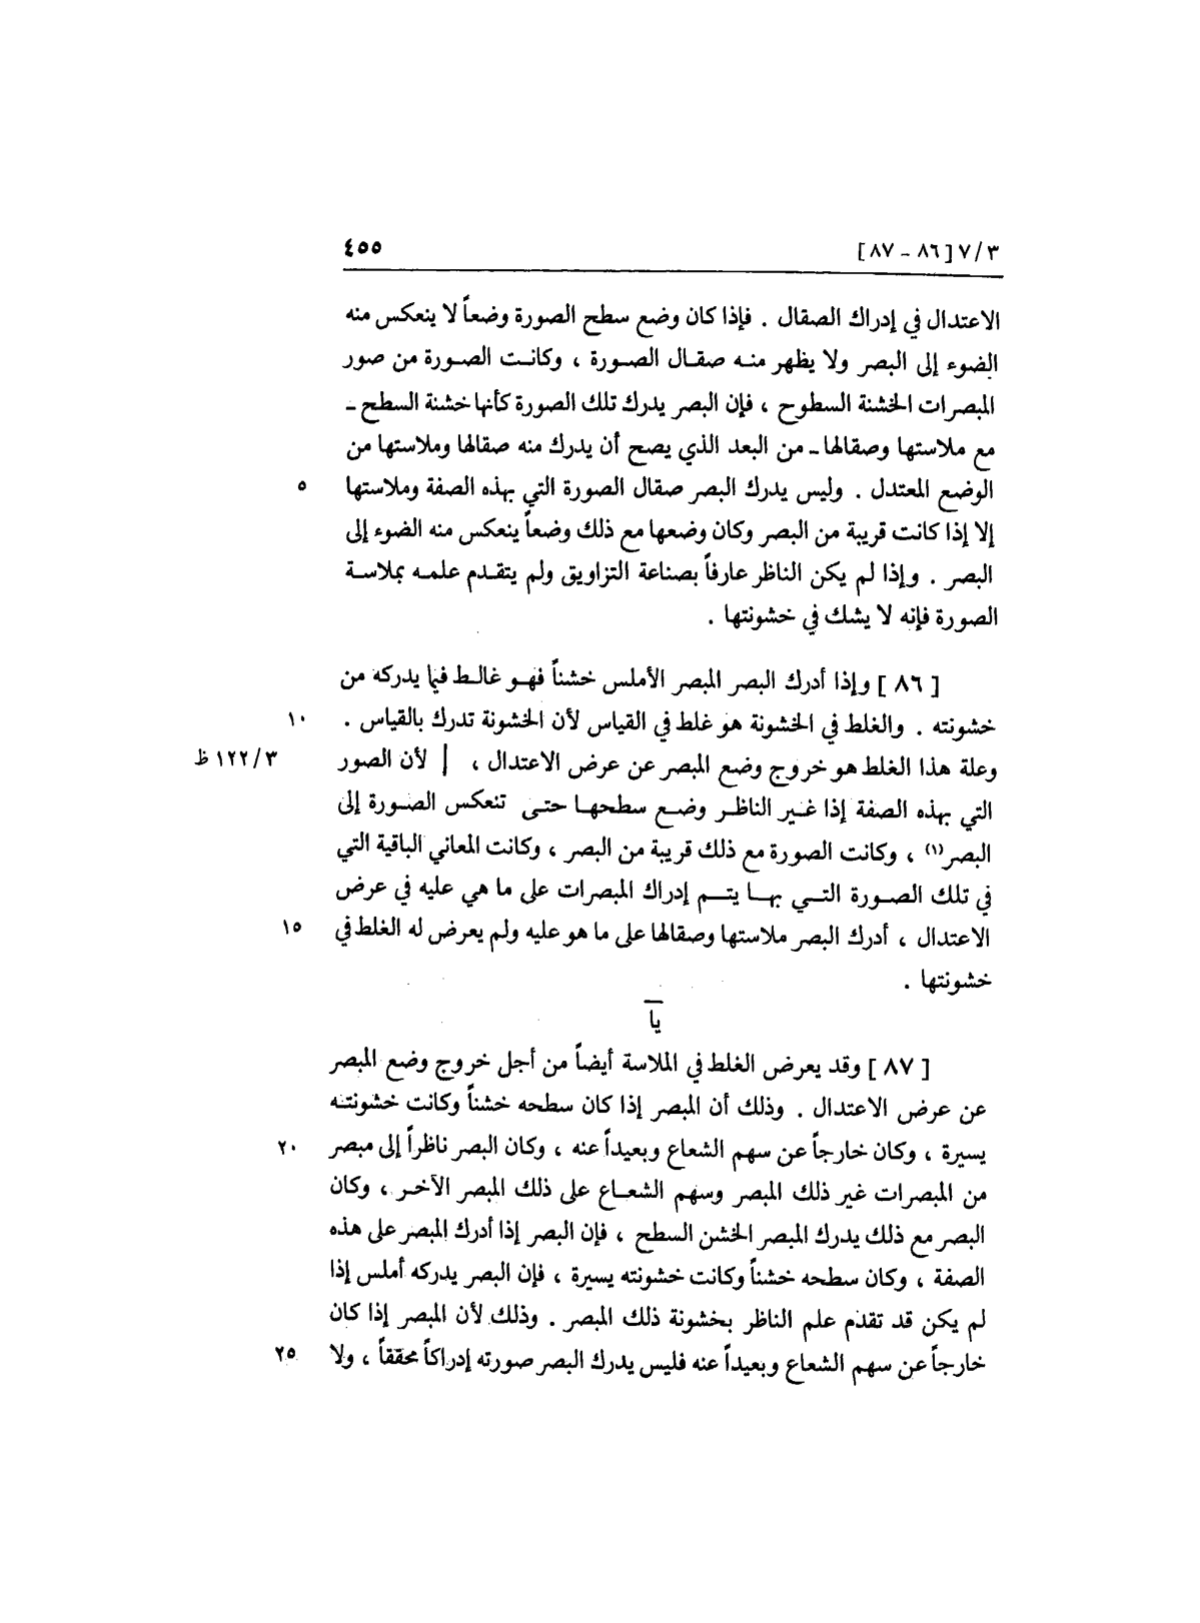 ٣/٧ [٨٦ - ٨٧] ٤٥٥
الاعتدال في إدراك الصقال . فإذا كان وضع سطح الصورة وضعاً لا ينعكس منه
الضوء إلى البصر ولا يظهر منه صقال الصورة ، وكانت الصورة من صور
المبصرات الخشنة السطوح ، فإن البصر يدرك تلك الصورة كأنها خشنة السطح -
مع ملاستها وصقالها - من البعد الذي يصح أن يدرك منه صقالها وملاستها من
الوضع المعتدل . وليس يدرك البصر صقال الصورة التي بهذه الصفة وملاستها ٥
إلا إذا كانت قريبة من البصر وكان وضعها مع ذلك وضعاً ينعكس منه الضوء إلى
البصر . وإذا لم يكن الناظر عارفاً بصناعة التزاويق ولم يتقدم علمه بملاسة
الصورة فإنه لا يشك في خشونتها .
[ ٨٦ ] وإذا أدرك البصر المبصر الأملس خشناً فهو غالط فيما يدركه من
خشونته . والغلط في الخشونة هو غلط في القياس لأن الخشونة تدرك بالقياس . ١٠
وعلة هذا الغلط هو خروج وضع المبصر عن عرض الاعتدال ، | لأن الصور ٣/١٢٢ ظ
التي بهذه الصفة إذا غير الناظر وضع سطحها حتى تنعكس الصورة إلى
البصر(١) ، وكانت الصورة مع ذلك قريبة من البصر ، وكانت المعاني الباقية التي
في تلك الصورة التي بها يتم إدراك المبصرات على ما هي عليه في عرض
الاعتدال ، أدرك البصر ملاستها وصقالها على ما هو عليه ولم يعرض له الغلط في ١٥
خشونتها .
يا
[ ٨٧ ] وقد يعرض الغلط في الملاسة أيضاً من أجل خروج وضع المبصر
عن عرض الاعتدال . وذلك أن المبصر إذا كان سطحه خشناً وكانت خشونته
يسيرة ، وكان خارجاً عن سهم الشعاع وبعيداً عنه ، وكان البصر ناظراً إلى مبصر ٢٠
من المبصرات غير ذلك المبصر وسهم الشعاع على ذلك المبصر الآخر ، وكان
البصر مع ذلك يدرك المبصر الخشن السطح ، فإن البصر إذا أدرك المبصر على هذه
الصفة ، وكان سطحه خشناً وكانت خشونته يسيرة ، فإن البصر يدركه أملس إذا
لم يكن قد تقدم علم الناظر بخشونة ذلك المبصر . وذلك لأن المبصر إذا كان
خارجاً عن سهم الشعاع وبعيداً عنه فليس يدرك البصر صورته إدراكاً محققاً ، ولا ٢٥